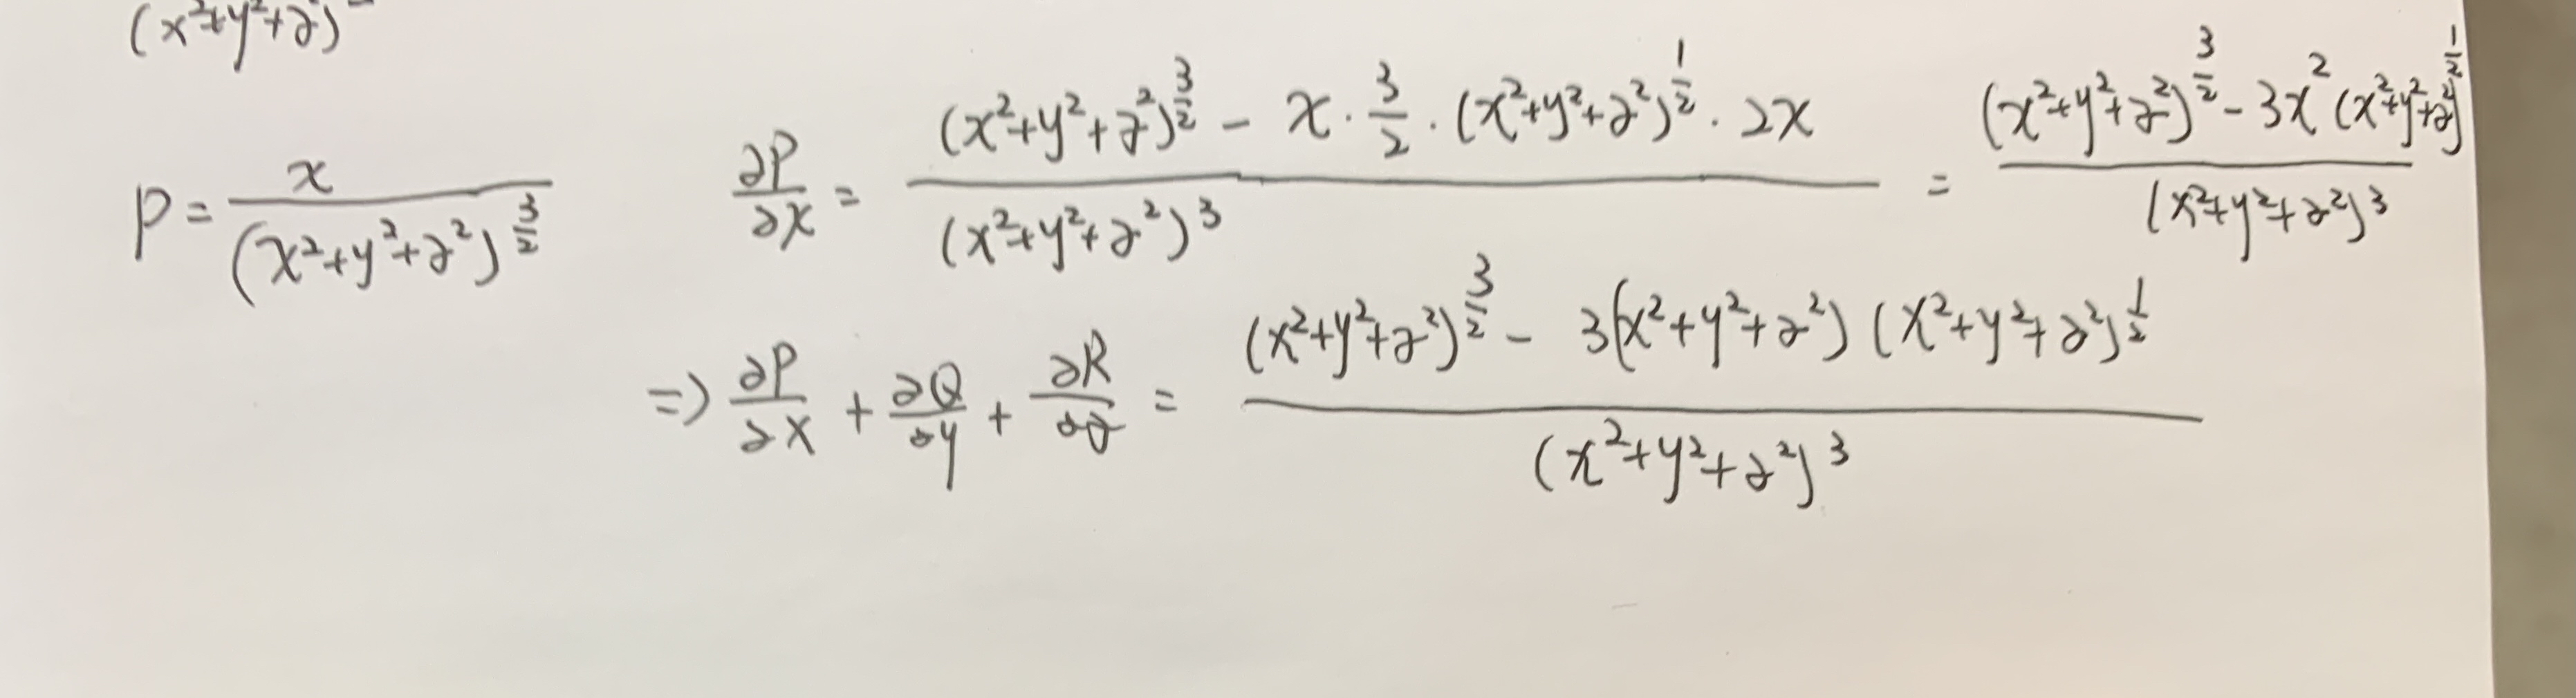 (x²+y²+z)
P = x / (x²+y²+z²)^(3/2)  ∂P/∂x = ((x²+y²+z²)^(3/2) - x · 3/2 · (x²+y²+z²)^(1/2) · 2x) / (x²+y²+z²)³ = ((x²+y²+z²)^(3/2) - 3x²(x²+y²+z²)^(1/2)) / (x²+y²+z²)³
=> ∂P/∂x + ∂Q/∂y + ∂R/∂z = ((x²+y²+z²)^(3/2) - 3(x²+y²+z²)(x²+y²+z²)^(1/2)) / (x²+y²+z²)³